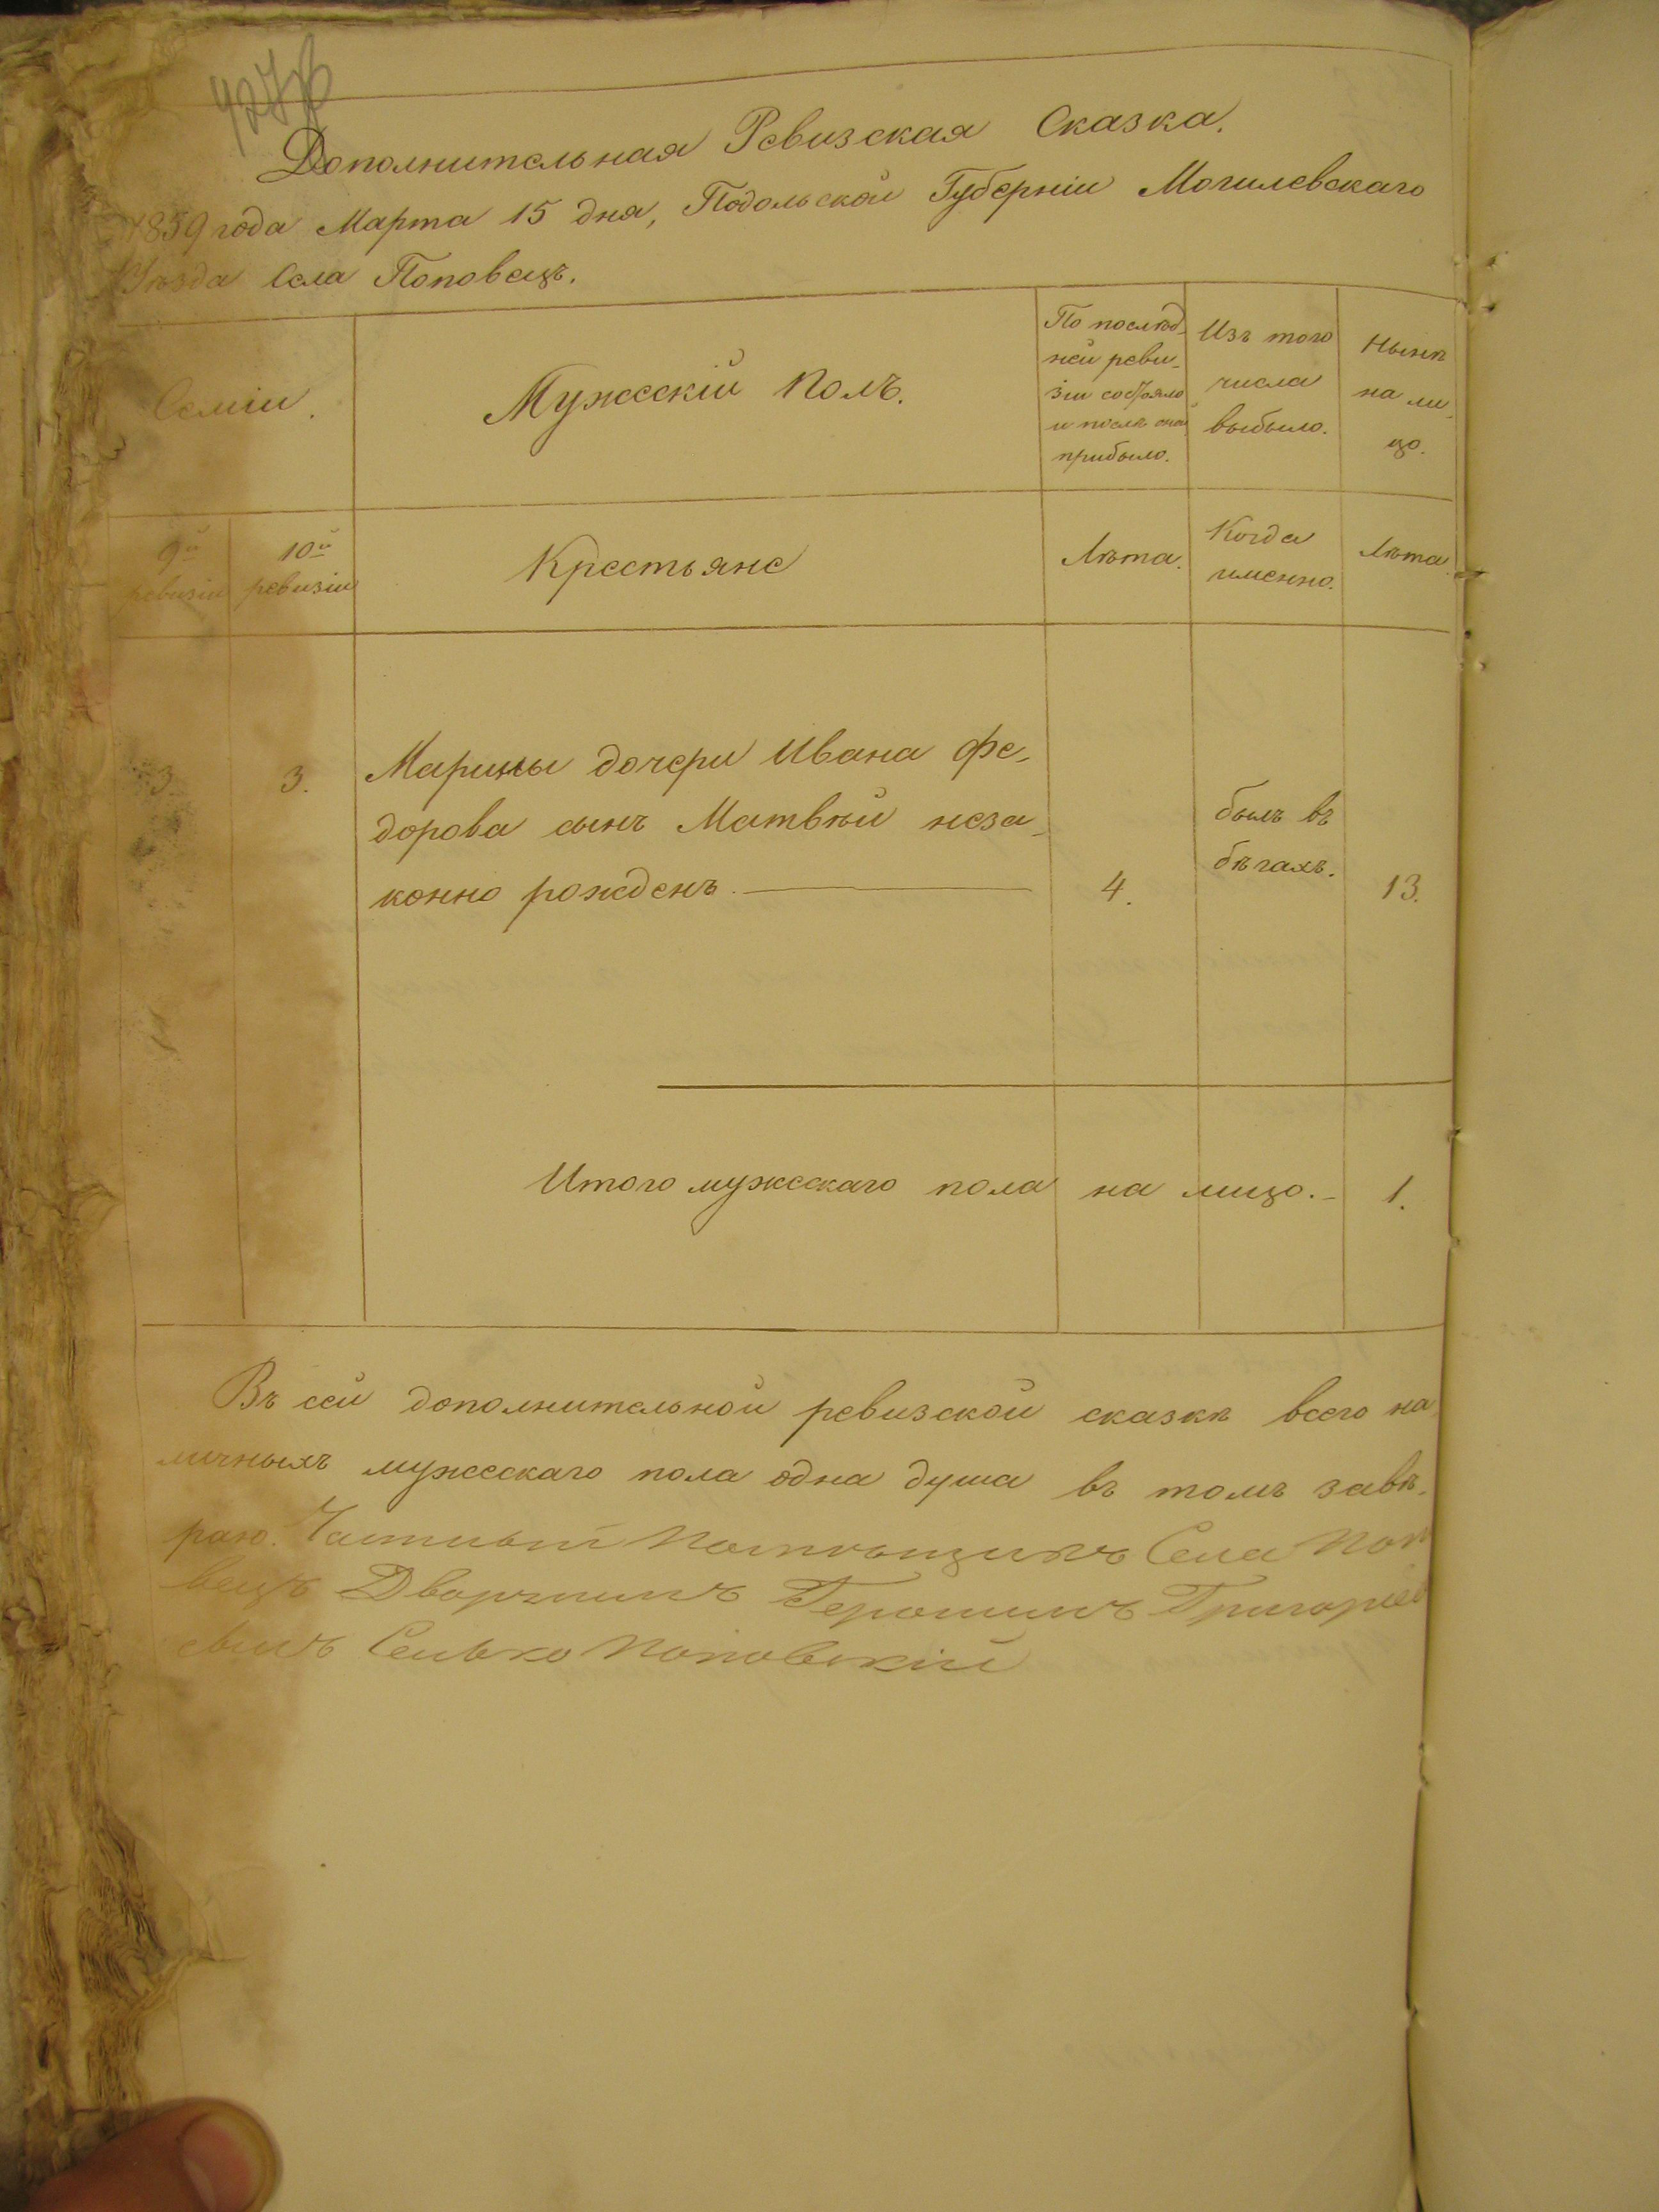 Дополнительная Ревизская Сказка.
1859 года Марта 15 дня, Подольской Губерніи Могилевскаго
Уѣзда Села Поповецъ.
Семіи.
Мужескій Полъ.
По послѣд-
ней реви-
зіи состояло
и послѣ оной
прибыло.
Изъ того
числа
выбыло.
Нынѣ
на ли-
цо.
9й
ревизіи
10й
ревизіи
Крестьяне
Лѣта.
Когда
именно.
Лѣта.
3.
3.
Марины дочери Ивана Фе-
дорова сынъ Матвѣй неза-
конно рожденъ.
4.
былъ въ
бѣгахъ.
13.
Итого мужескаго пола на лицо.- 1.
Въ сей дополнительной ревизской сказкѣ всего на
личныхъ мужескаго пола одна душа въ томъ завѣ-
раю. Села Попо
вецъ Дворянинъ Григорьев
Поповскій